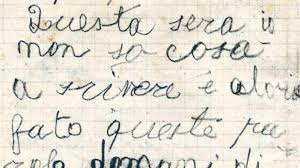 Questa sera io
non so cosa
a scrivere é
fato queste pa
role domani di